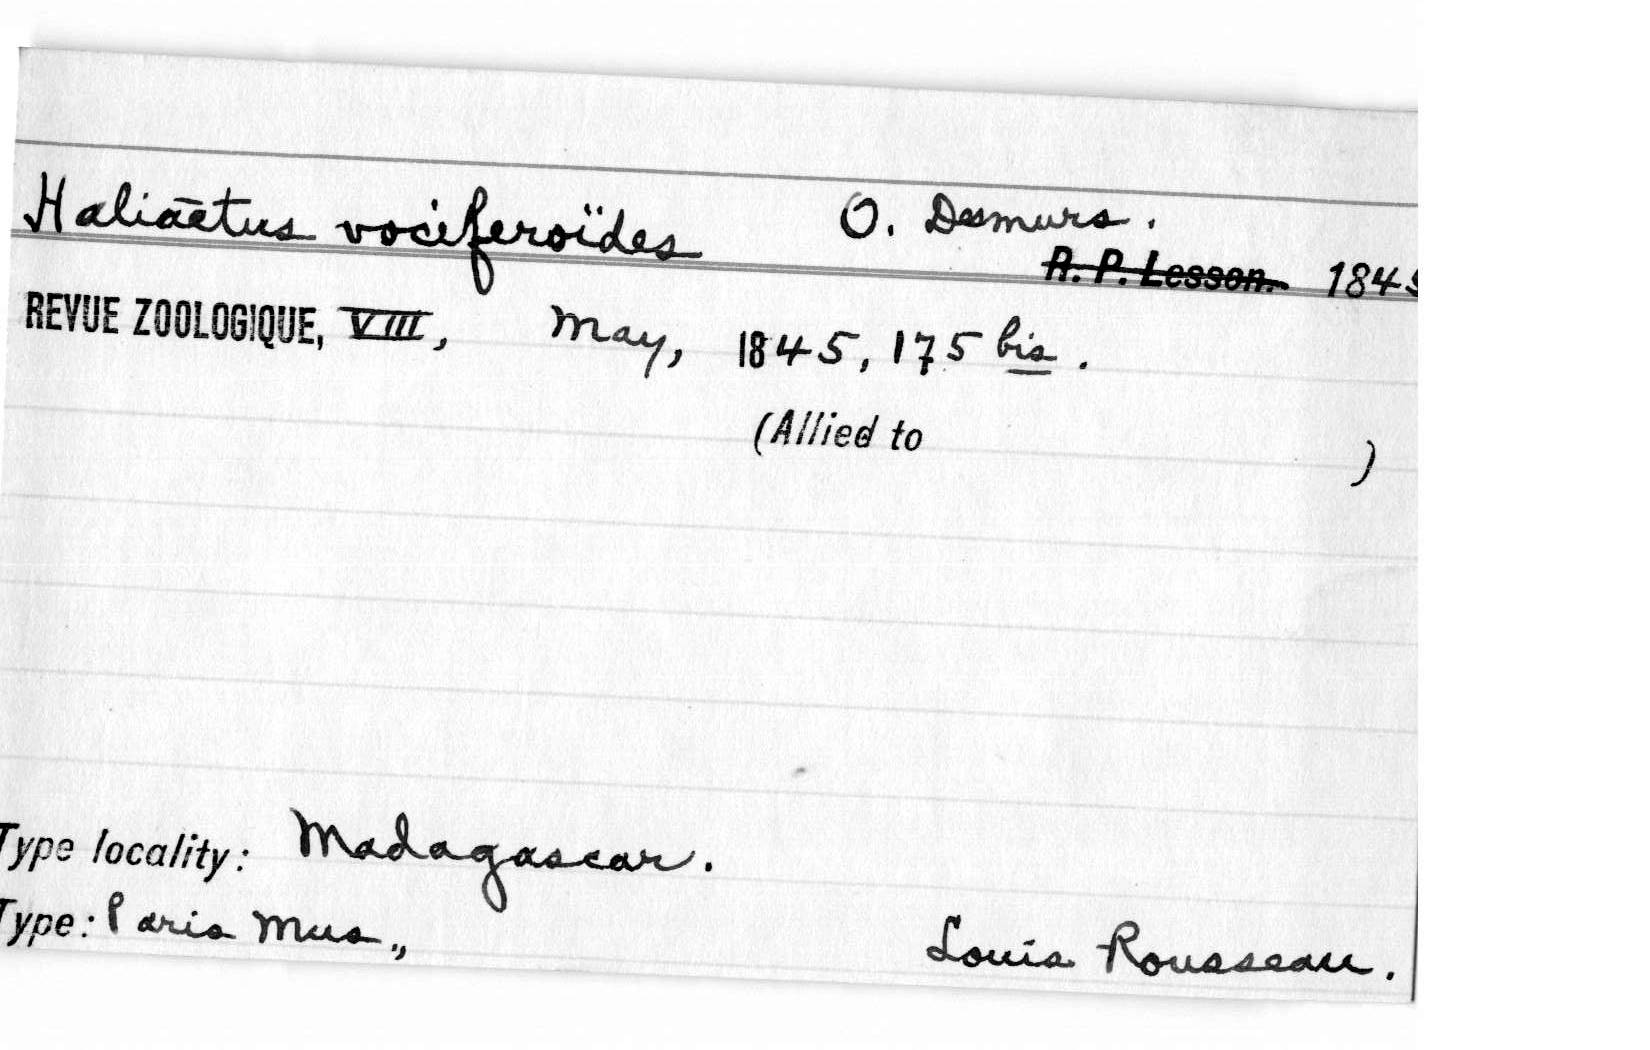 Haliaëtus vociferoïdes O. Desmurs.
R. P. Lesson. 1845
REVUE ZOOLOGIQUE, VIII, May, 1845, 175 bis.
(Allied to )
Type locality: Madagascar.
Type: Paris Mus., Louis Rousseau.